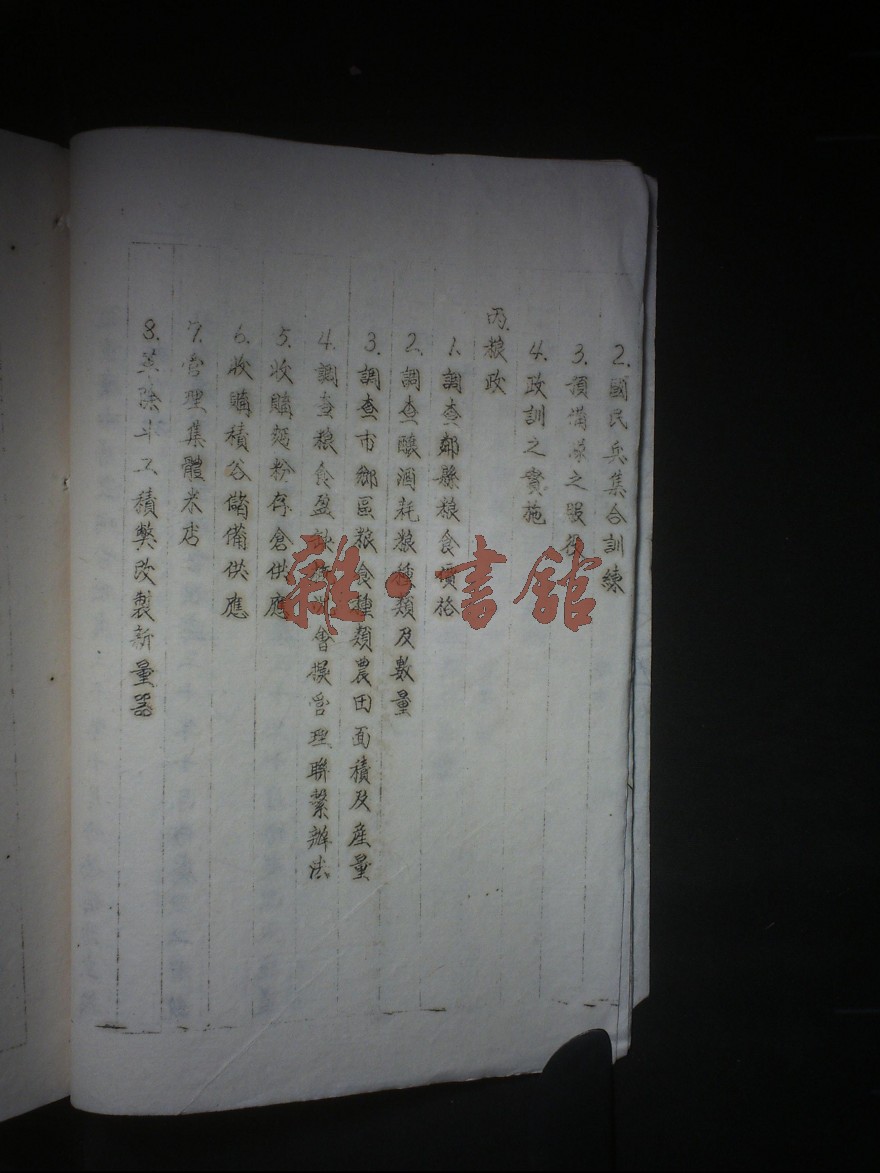 2. 國民兵集合訓練
3. 預備隊之服役
4. 政訓之實施
丙. 粮政
1. 調查鄰縣粮食價格
2. 調查釀酒耗粮種類及數量
3. 調查市鄉區粮食種類農田面積及產量
4. 調查粮食盈缺會擬管理聯繫辦法
5. 收購麵粉存倉供應
6. 收購積谷儲備供應
7. 管理集體米店
8. 革除斗工積弊改製新量器
雜·書館